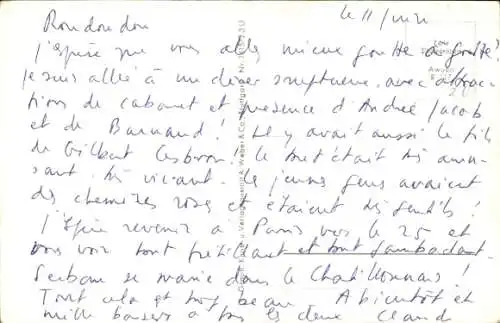 Rondoudou
le 11 juin
J'espère que vous allez mieux goutte à goutte!
Je suis allé à un dîner somptueux avec attrac-
tions de cabaret et présence d'André Jacob
et de Barnaud! Il y avait aussi le fils
de Gilbert Cesbron! le tout était très amu-
sant très vivant. les jeunes gens avaient
des chemises roses et étaient très gentils!
J'espère revenir à Paris vers le 25 et
vous voir tout pétillant et tout gambadant.
se marie dans le Chatillonnais!
Tout cela est trop beau A bientôt et
mille baisers à tous les deux Claude